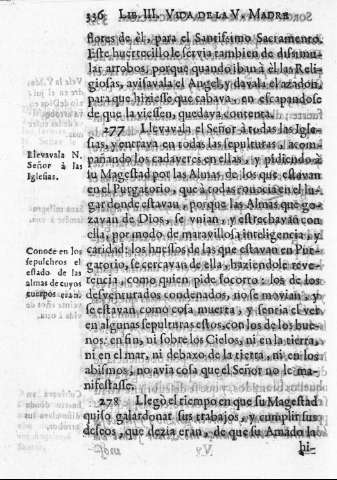 336 LIB. III. VIDA DE LA V. MADRE
flores de èl, para el Santissimo Sacramento.
Este huertecillo le servia tambien de disimu-
lar arrobos, porque quando iban à èl las Reli-
giosas, avisavala el Angel, y davala el azadon,
para que hiziesse que cabava, en escapandose
de que la viessen, quedava contenta.
277 Llevavala el Señor à todas las Igle-
sias, y entrava en todas las sepulturas, acom-
pañando los cadaveres en ellas, y pidiendo à
su Magestad por las Almas de los que estavan
en el Purgatorio, que à todas conocia en el lu-
gar donde estavan, porque las Almas que go-
zavan de Dios, se vnian, y estrechavan con
ella, por modo de maravillosa inteligencia, y
caridad: los huessos de las que estavan en Pur-
gatorio, se cercavan de ella, haziendole reve-
rencia, como quien pide socorro: los de los
desventurados condenados, no se movian, y
se estavan como cosa muerta, y sentia el ver
en algunas sepulturas estos, con los de los bue-
nos: en fin, ni sobre los Cielos, ni en la tierra,
ni en el mar, ni debaxo de la tierra, ni en los
abismos, no avia cosa que el Señor no le ma-
nifestasse.
278 Llegò el tiempo en que su Magestad
quiso galardonar sus trabajos, y cumplir sus
deseos, que dezia eran, de que su Amado la
hi-
Llevavala N.
Señor à las
Iglesias.
Conoce en los
sepulchros el
estado de las
almas de cuyos
cuerpos eran.